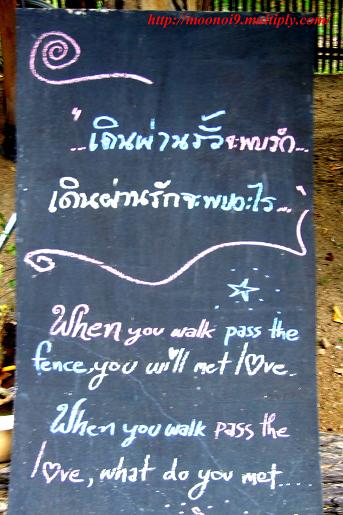 http://moonoi9.multiply.com/
"...เดินผ่านรั้วจะพบรัก...
เดินผ่านรักจะพบอะไร..."
When you walk pass the
fence, you will met love..
When you walk pass the
love, what do you met....